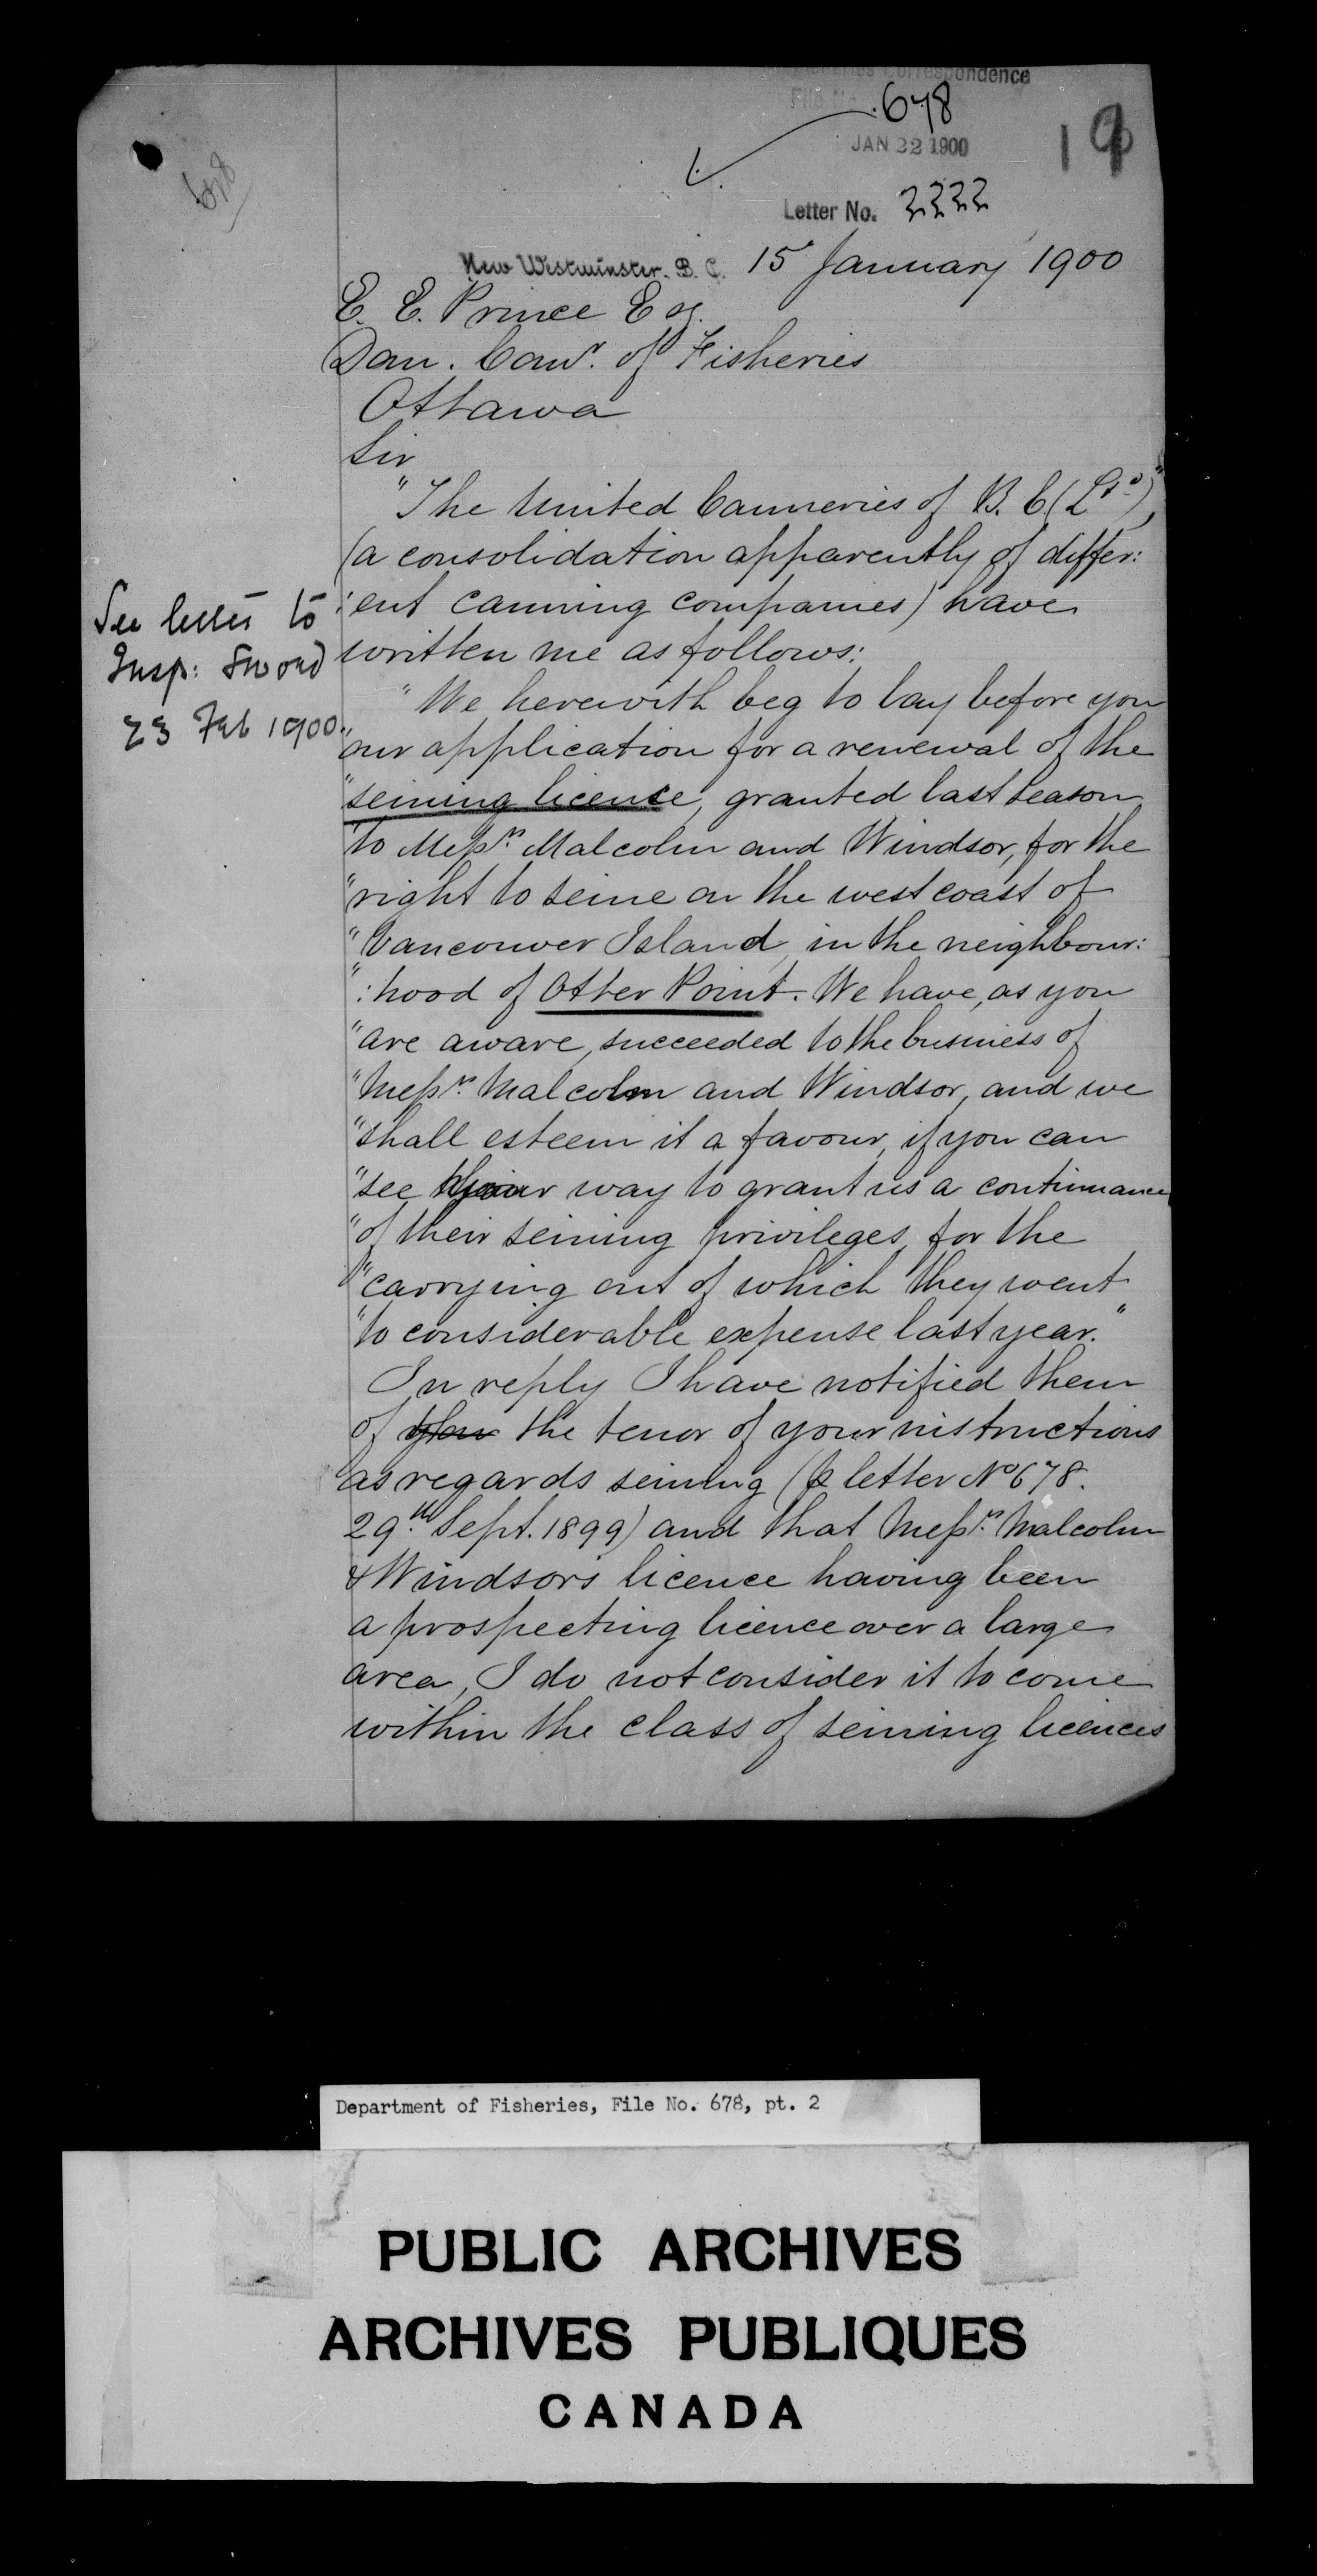 Fisheries Correspondence
File No. 678
JAN 22 1900
19
678
Letter No. 2222
New Westminster. B. C. 15 January 1900
E. E. Prince Esq.
Dom. Comr. of Fisheries
Ottawa
Sir
"The United Canneries of B. C (Ltd)",
(a consolidation apparently of differ:
:ent canning companies) have
written me as follows:
See letter to
Insp: Sword
23 Feb 1900.
"We herewith beg to lay before you
"our application for a renewal of the
"seining licence, granted last season
"to Messrs. Malcolm and Windsor, for the
"right to seine on the west coast of
"Vancouver Island, in the neighbour:
":hood of Otter Point. We have, as you
"are aware, succeeded to the business of
"Messrs. Malcolm and Windsor, and we
"shall esteem it a favour, if you can
"see your way to grant us a continuance
"of their seining privileges, for the
"carrying out of which they went
"to considerable expense last year."
In reply I have notified them
of the tenor of your instructions
as regards seining (letter No 678.
29th Sept. 1899) and that Messrs. Malcolm
& Windsor's licence having been
a prospecting licence over a large
area, I do not consider it to come
within the class of seining licences
Department of Fisheries, File No. 678, pt. 2
PUBLIC ARCHIVES
ARCHIVES PUBLIQUES
CANADA